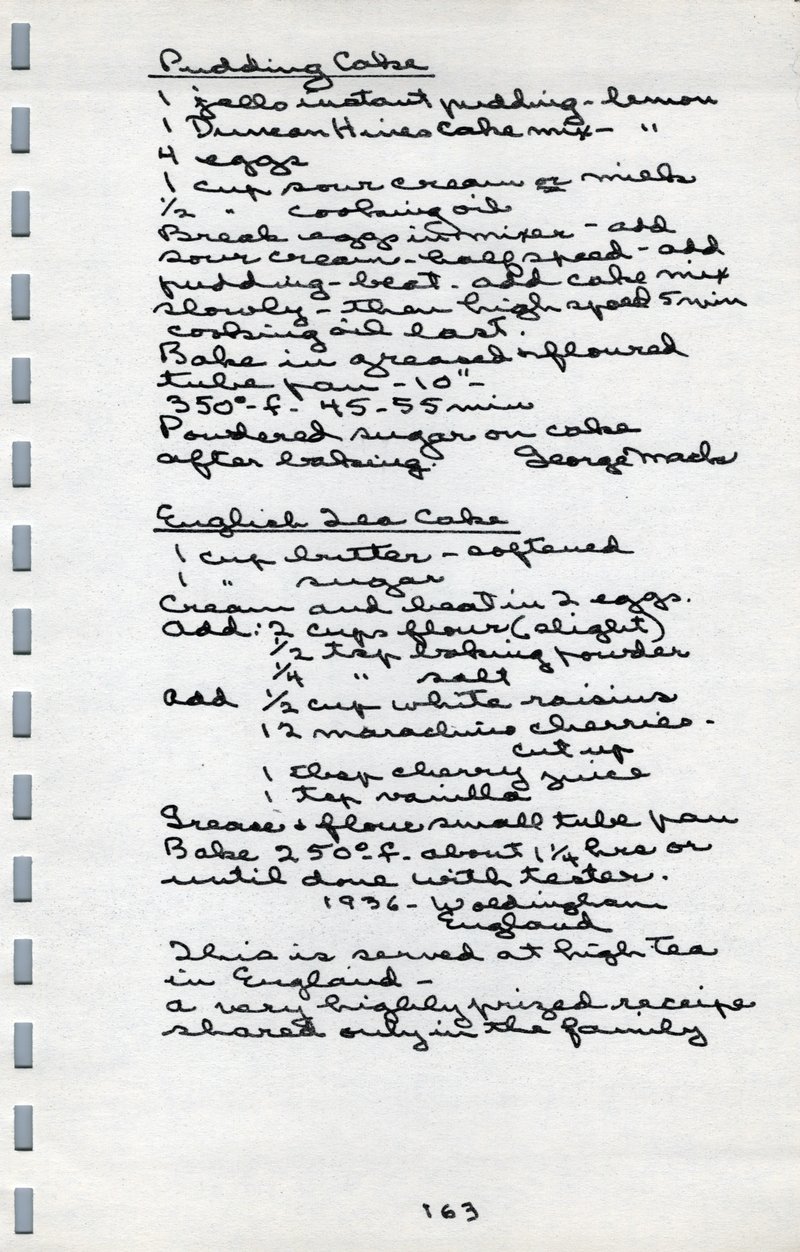 Pudding Cake
1 jello instant pudding - lemon
1 Duncan Hines cake mix - "
4 eggs
1 cup sour cream or milk
1/2 " cooking oil
Break eggs in mixer - add
sour cream - half speed - add
pudding - beat. add cake mix
slowly - then high speed 5 min
cooking oil last.
Bake in greased & floured
tube pan - 10" -
350°-f - 45-55 min
Powdered sugar on cake
after baking. George Mack
English Tea Cake
1 cup butter - softened
1 " sugar
Cream and beat in 2 eggs.
Add: 2 cups flour (slight)
1/2 tsp baking powder
1/4 " salt
Add 1/2 cup white raisins
12 marachino cherries -
cut up
1 tbsp cherry juice
1 tsp vanilla
Grease & flour small tube pan
Bake 250°-f. about 1 1/4 hrs or
until done with tester.
1936 - Woldingham
England
This is served at high Tea
in England -
a very highly prized receipe
shared only in the family
163